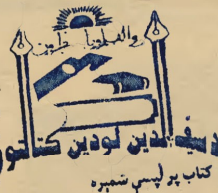 والقلم وما يسطرون
د سيف الدين لودين کتابتون
کتاب پر لپسې نمبره